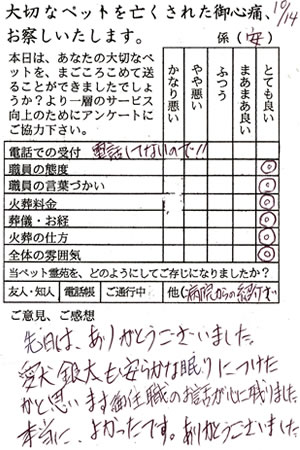 大切なペットを亡くされた御心痛、
お察しいたします。
10/14
係(安)
本日は、あなたの大切なペ
ットを、まごころこめて送
ることができましたでしょ
うか?より一層のサービス
向上のためにアンケートに
ご協力下さい。
かなり悪い
やや悪い
ふつう
まあまあ良い
とても良い
電話での受付 電話してないので!!
職員の態度 ◎
職員の言葉づかい ◎
火葬料金 ◎
葬儀・お経 ◎
火葬の仕方 ◎
全体の雰囲気 ◎
当ペット霊苑を、どのようにしてご存じになりましたか?
友人・知人 電話帳 ご通行中 他(病院からの紹介で
ご意見、ご感想
先日は、ありがとうございました。
愛犬 銀太も安らかな眠りにつけた
かと思います 御住職のお話が心に残りました
本当に、よかったです。ありがとうございました